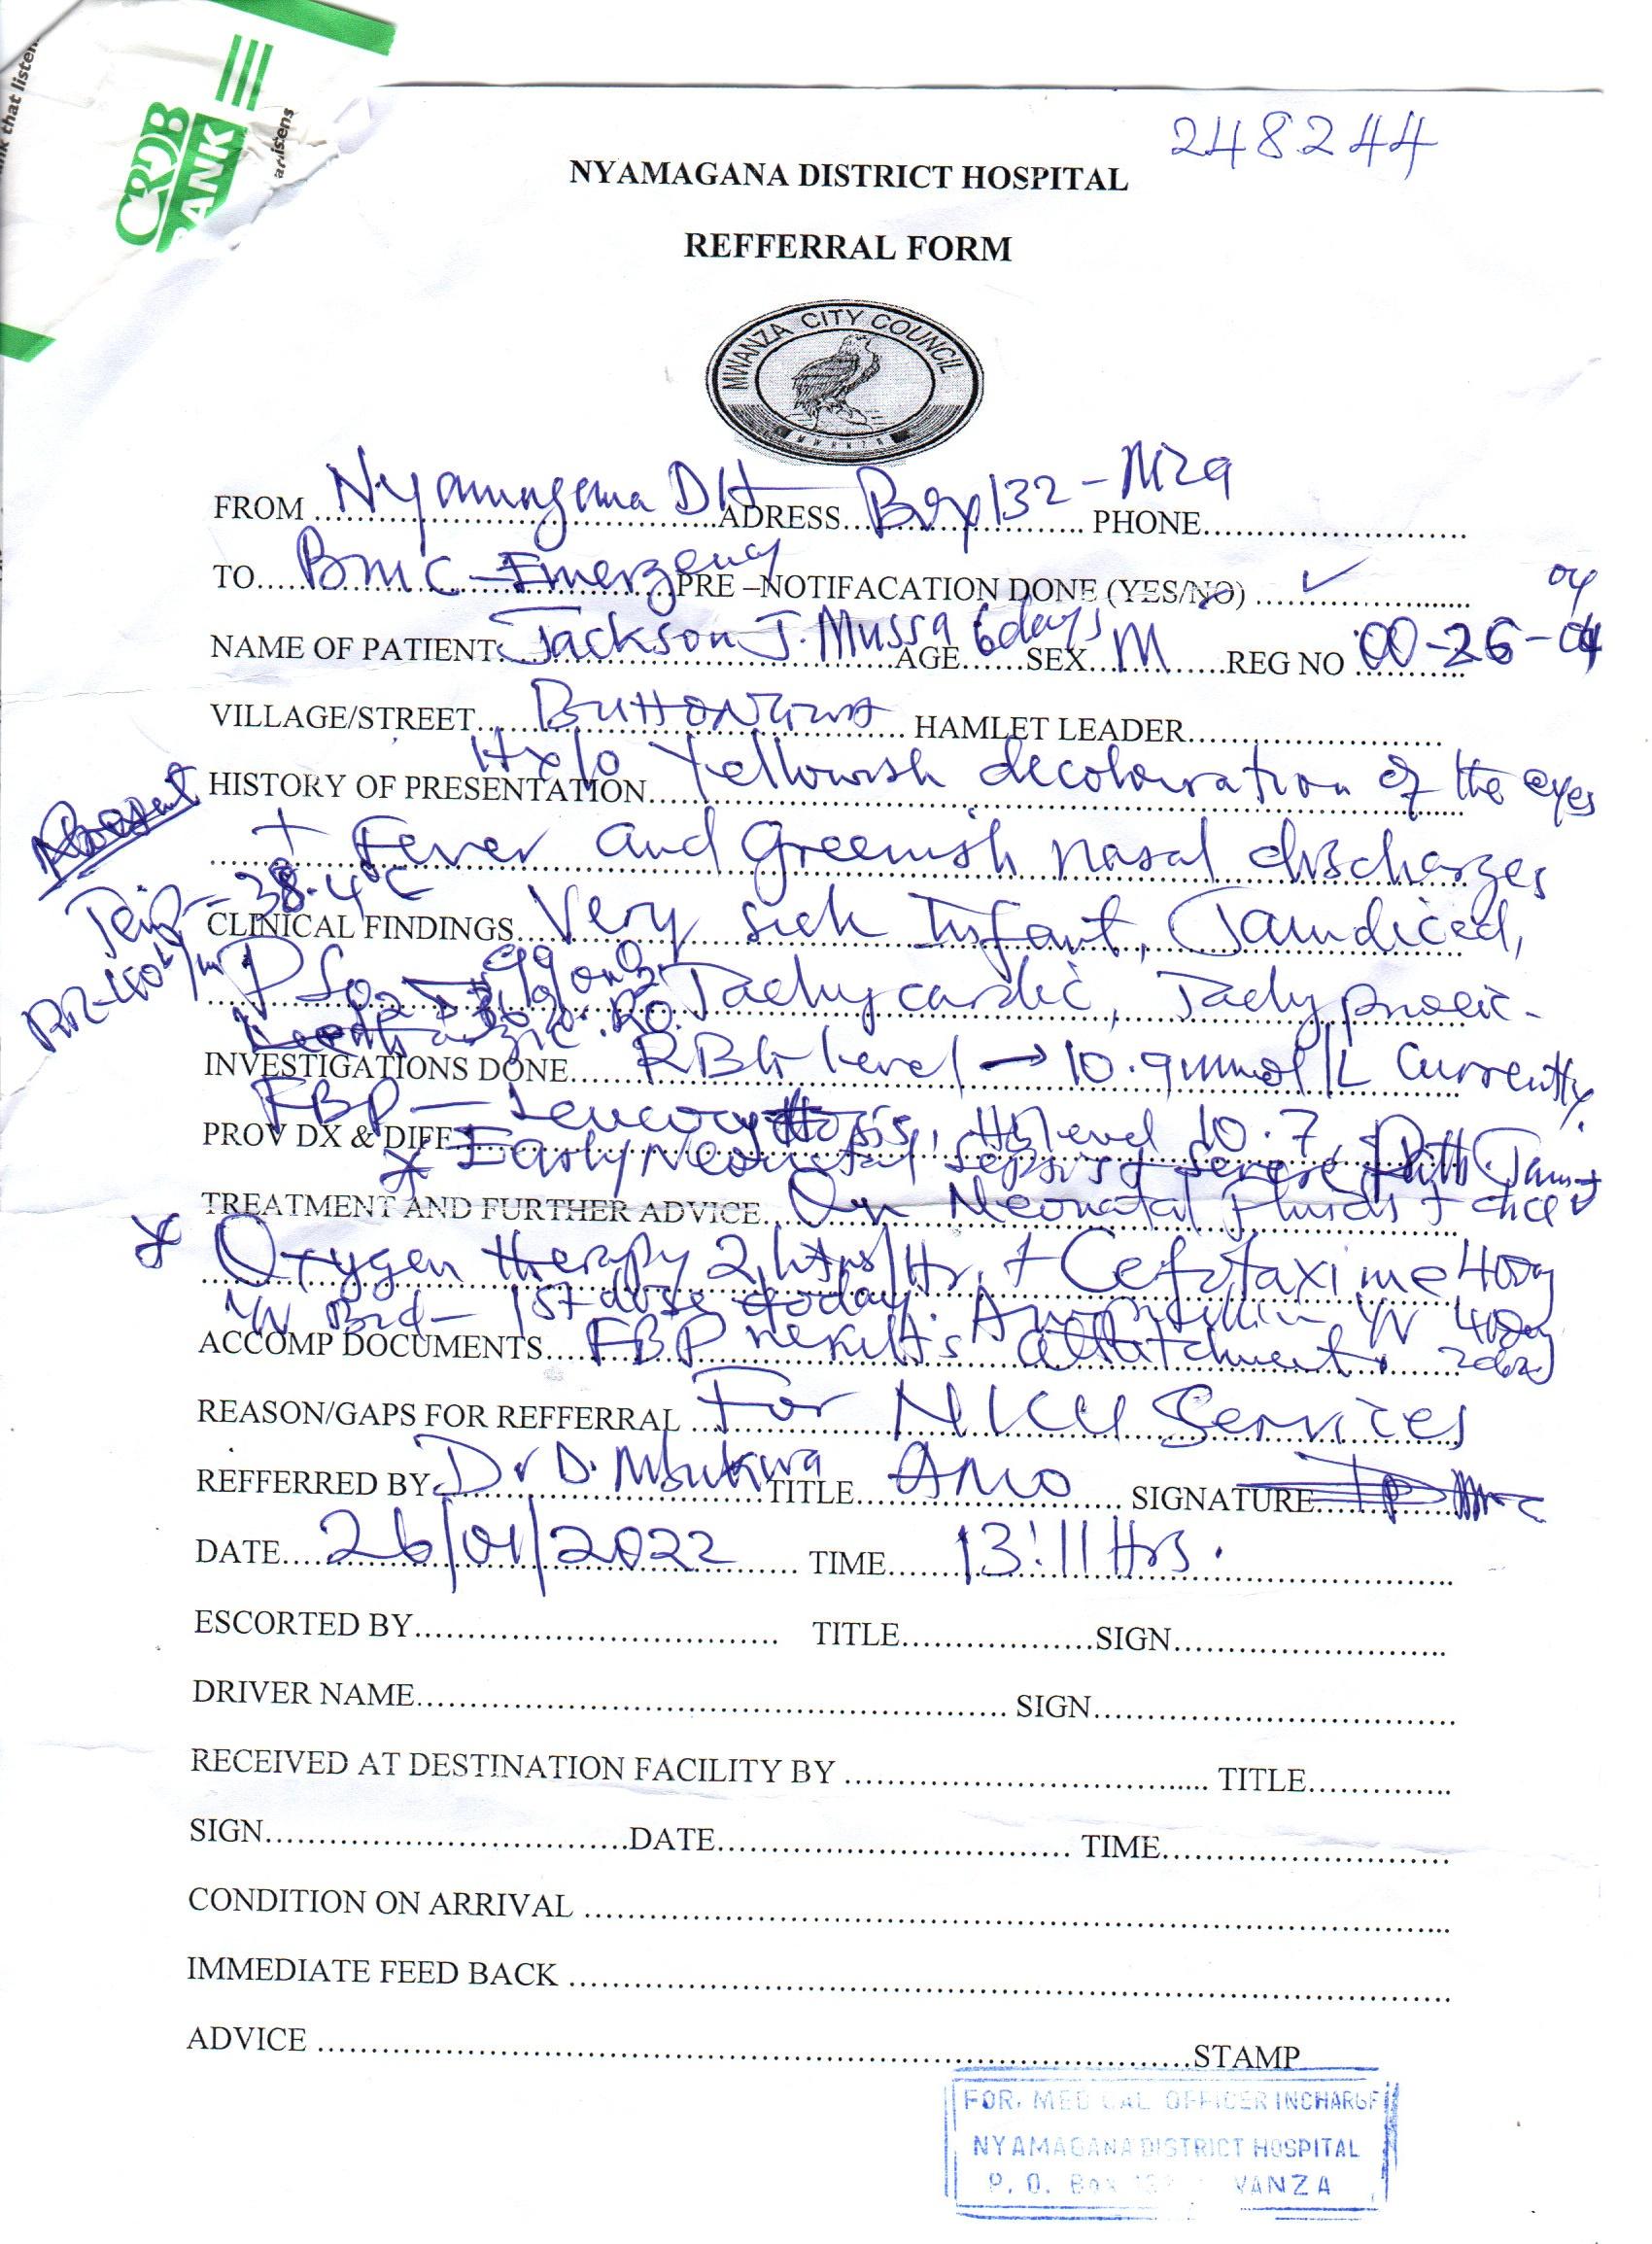 that listen
CRDB
BANK
listens
248244
NYAMAGANA DISTRICT HOSPITAL
REFFERRAL FORM
MWANZA CITY COUNCIL
MWANZA
FROM Nyamagana DH ADRESS Box 132 - Mza PHONE
TO Bmc - Emergency PRE –NOTIFACATION DONE (YES/NO) ✓
NAME OF PATIENT: Jackson J. Mussa AGE 6days SEX M REG NO 00-26-04 04
VILLAGE/STREET HAMLET LEADER
HISTORY OF PRESENTATION Hx/o Yellowish decolouration of the eyes
+ Fever and Greenish nasal discharges
Temp - 38.4°C
CLINICAL FINDINGS Very sick Infant, Jaundiced,
PSO2 → 99% on O2 Tachycardic, Tachypnoeic -
INVESTIGATIONS DONE RBG level → 10.9mmol/L Currently.
FBP - Leucocytosis, Hb level 10.7,
PROV DX & DIFF * Early Neonatal Sepsis + Severe Path Jaund
TREATMENT AND FURTHER ADVICE On Neonatal Fluids +
* Oxygen therapy 2 /Hr, + Cefotaxime
IV Bid - 1st dose today. Ampicillin IV
ACCOMP DOCUMENTS FBP results attatchment.
REASON/GAPS FOR REFFERRAL For NICU Services
REFFERRED BY Dr D. Mbukwa TITLE AMO SIGNATURE
DATE 26/01/2022 TIME 13:11 Hrs.
ESCORTED BY TITLE SIGN
DRIVER NAME SIGN
RECEIVED AT DESTINATION FACILITY BY TITLE
SIGN DATE TIME
CONDITION ON ARRIVAL
IMMEDIATE FEED BACK
ADVICE STAMP
FOR. MEDICAL OFFICER INCHARGE
NYAMAGANA DISTRICT HOSPITAL
P. O. Box VANZA